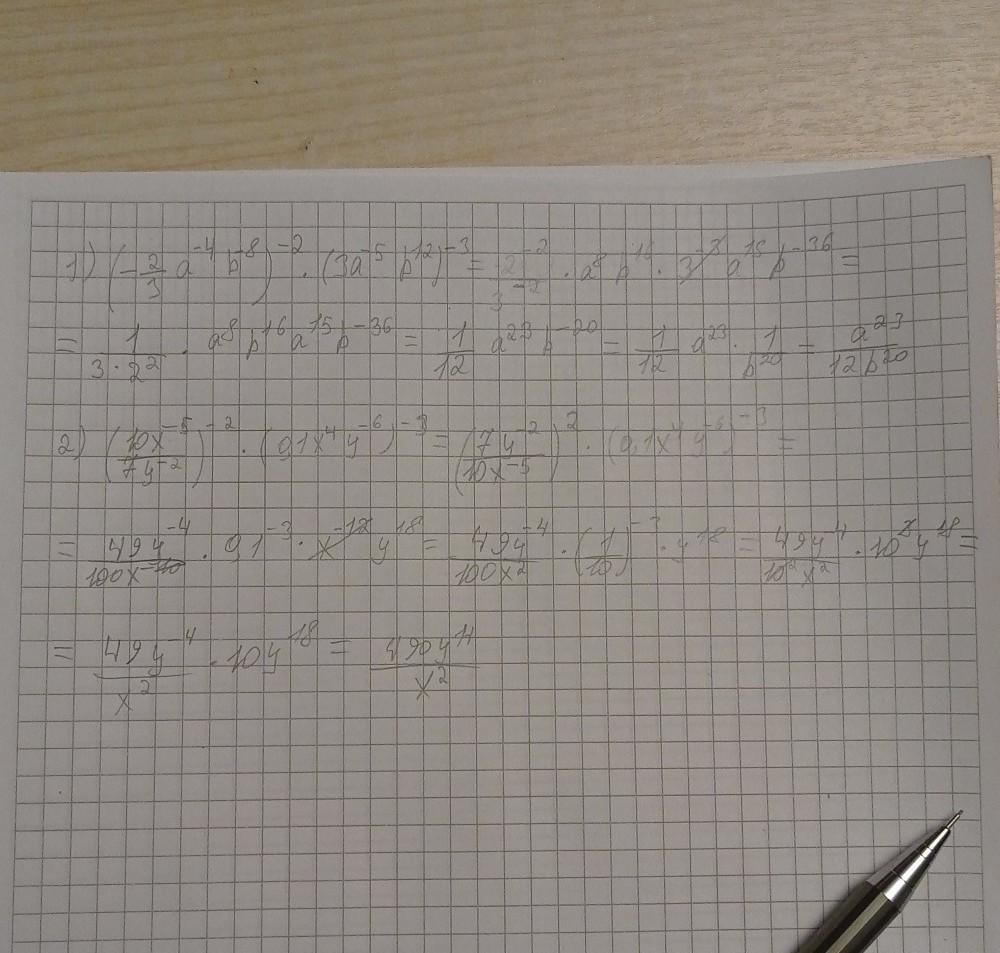 1) (-2/3 a^-4 b^-8)^-2 · (3a^-5 b^12)^-3 = 2^-2/3^-2 · a^8 b^16 · 3^-3 a^15 b^-36 =
= 1/(3·2^2) · a^8 b^16 a^15 b^-36 = 1/12 a^23 b^-20 = 1/12 a^23 · 1/b^20 = a^23/(12b^20)
2) (10x^-5/7y^-2)^-2 · (0,1x^4 y^-6)^-3 = (7y^-2/10x^-5)^2 · (0,1x^4 y^-6)^-3 =
= 49y^-4/100x^-10 · 0,1^-3 · x^-12 y^18 = 49y^-4/100x^2 · (1/10)^-3 · y^18 = 49y^-4/10^2x^2 · 10^3 y^18 =
= 49y^-4/x^2 · 10y^18 = 490y^14/x^2